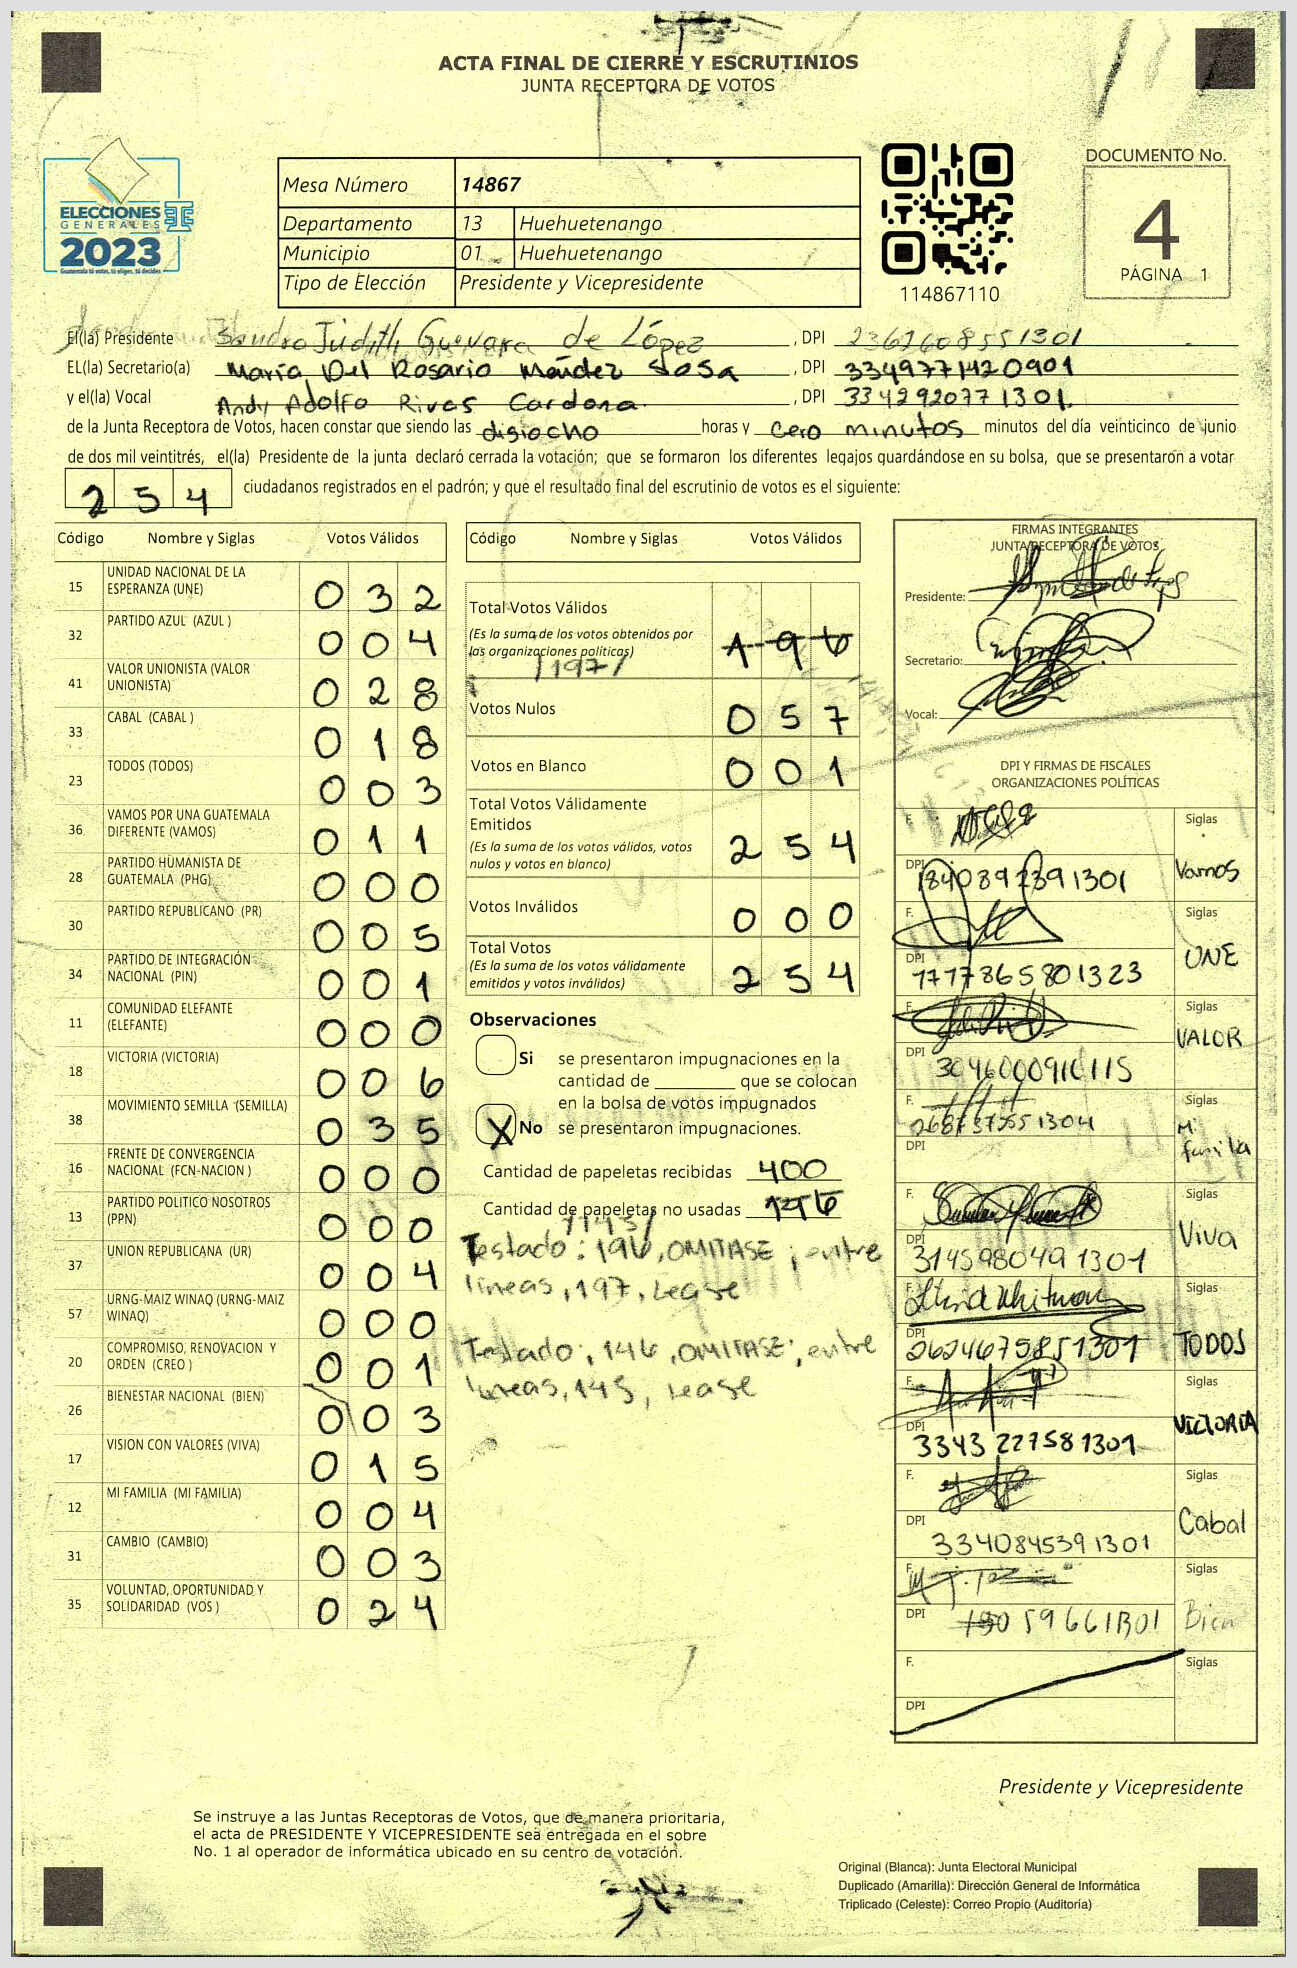 ACTA FINAL DE CIERRE Y ESCRUTINIOS
JUNTA RECEPTORA DE VOTOS
ELECCIONES
GENERALES
2023
Guatemala tú votas, tú eliges, tú decides
Mesa Número 14867
Departamento 13 Huehuetenango
Municipio 01 Huehuetenango
Tipo de Elección Presidente y Vicepresidente
114867110
DOCUMENTO No.
4
PÁGINA 1
El(la) Presidente Sandra Judith Guevara de López, DPI 2362608551301
EL(la) Secretario(a) María Del Rosario Méndez Sosa, DPI 3349771420901
y el(la) Vocal Andy Adolfo Rivas Cardona, DPI 3342920771301.
de la Junta Receptora de Votos, hacen constar que siendo las disiocho horas y cero minutos minutos del día veinticinco de junio
de dos mil veintitrés, el(la) Presidente de la junta declaró cerrada la votación; que se formaron los diferentes legajos guardándose en su bolsa, que se presentaron a votar
254 ciudadanos registrados en el padrón; y que el resultado final del escrutinio de votos es el siguiente:
Código Nombre y Siglas Votos Válidos
15 UNIDAD NACIONAL DE LA ESPERANZA (UNE) 032
32 PARTIDO AZUL (AZUL ) 004
41 VALOR UNIONISTA (VALOR UNIONISTA) 028
33 CABAL (CABAL ) 018
23 TODOS (TODOS) 003
36 VAMOS POR UNA GUATEMALA DIFERENTE (VAMOS) 011
28 PARTIDO HUMANISTA DE GUATEMALA (PHG) 000
30 PARTIDO REPUBLICANO (PR) 005
34 PARTIDO DE INTEGRACIÓN NACIONAL (PIN) 001
11 COMUNIDAD ELEFANTE (ELEFANTE) 000
18 VICTORIA (VICTORIA) 006
38 MOVIMIENTO SEMILLA (SEMILLA) 035
16 FRENTE DE CONVERGENCIA NACIONAL (FCN-NACION ) 000
13 PARTIDO POLITICO NOSOTROS (PPN) 000
37 UNION REPUBLICANA (UR) 004
57 URNG-MAIZ WINAQ (URNG-MAIZ WINAQ) 000
20 COMPROMISO, RENOVACION Y ORDEN (CREO ) 001
26 BIENESTAR NACIONAL (BIEN) 003
17 VISION CON VALORES (VIVA) 015
12 MI FAMILIA (MI FAMILIA) 004
31 CAMBIO (CAMBIO) 003
35 VOLUNTAD, OPORTUNIDAD Y SOLIDARIDAD (VOS ) 024
Código Nombre y Siglas Votos Válidos
Total Votos Válidos 196
(Es la suma de los votos obtenidos por
las organizaciones políticas)
/197/
Votos Nulos 057
Votos en Blanco 001
Total Votos Válidamente
Emitidos 254
(Es la suma de los votos válidos, votos
nulos y votos en blanco)
Votos Inválidos 000
Total Votos 254
(Es la suma de los votos válidamente
emitidos y votos inválidos)
Observaciones
Si se presentaron impugnaciones en la
cantidad de ________ que se colocan
en la bolsa de votos impugnados
X No se presentaron impugnaciones.
Cantidad de papeletas recibidas 400
Cantidad de papeletas no usadas 146
/145/
Testado: 196, OMITASE; entre
lineas, 197, Lease
Testado; 146, OMITASE; entre
lineas, 145, Lease
FIRMAS INTEGRANTES
JUNTA RECEPTORA DE VOTOS
Presidente:
Secretario:
Vocal:
DPI Y FIRMAS DE FISCALES
ORGANIZACIONES POLÍTICAS
F. Siglas
DPI 1840892391301 Vamos
F. Siglas
DPI 1777865801323 UNE
F. Siglas
DPI 3046000910115 VALOR
F. Siglas
2687372551304
DPI Mi familia
F. Siglas
DPI 3145980491301 Viva
F. Siglas
DPI 2624675851301 TODOS
F. Siglas
DPI 3343227581301 VICTORIA
F. Siglas
DPI 3340845391301 Cabal
F. Siglas
DPI Bien
F. Siglas
DPI
Presidente y Vicepresidente
Se instruye a las Juntas Receptoras de Votos, que de manera prioritaria,
el acta de PRESIDENTE Y VICEPRESIDENTE sea entregada en el sobre
No. 1 al operador de informática ubicado en su centro de votación.
Original (Blanca): Junta Electoral Municipal
Duplicado (Amarilla): Dirección General de Informática
Triplicado (Celeste): Correo Propio (Auditoría)